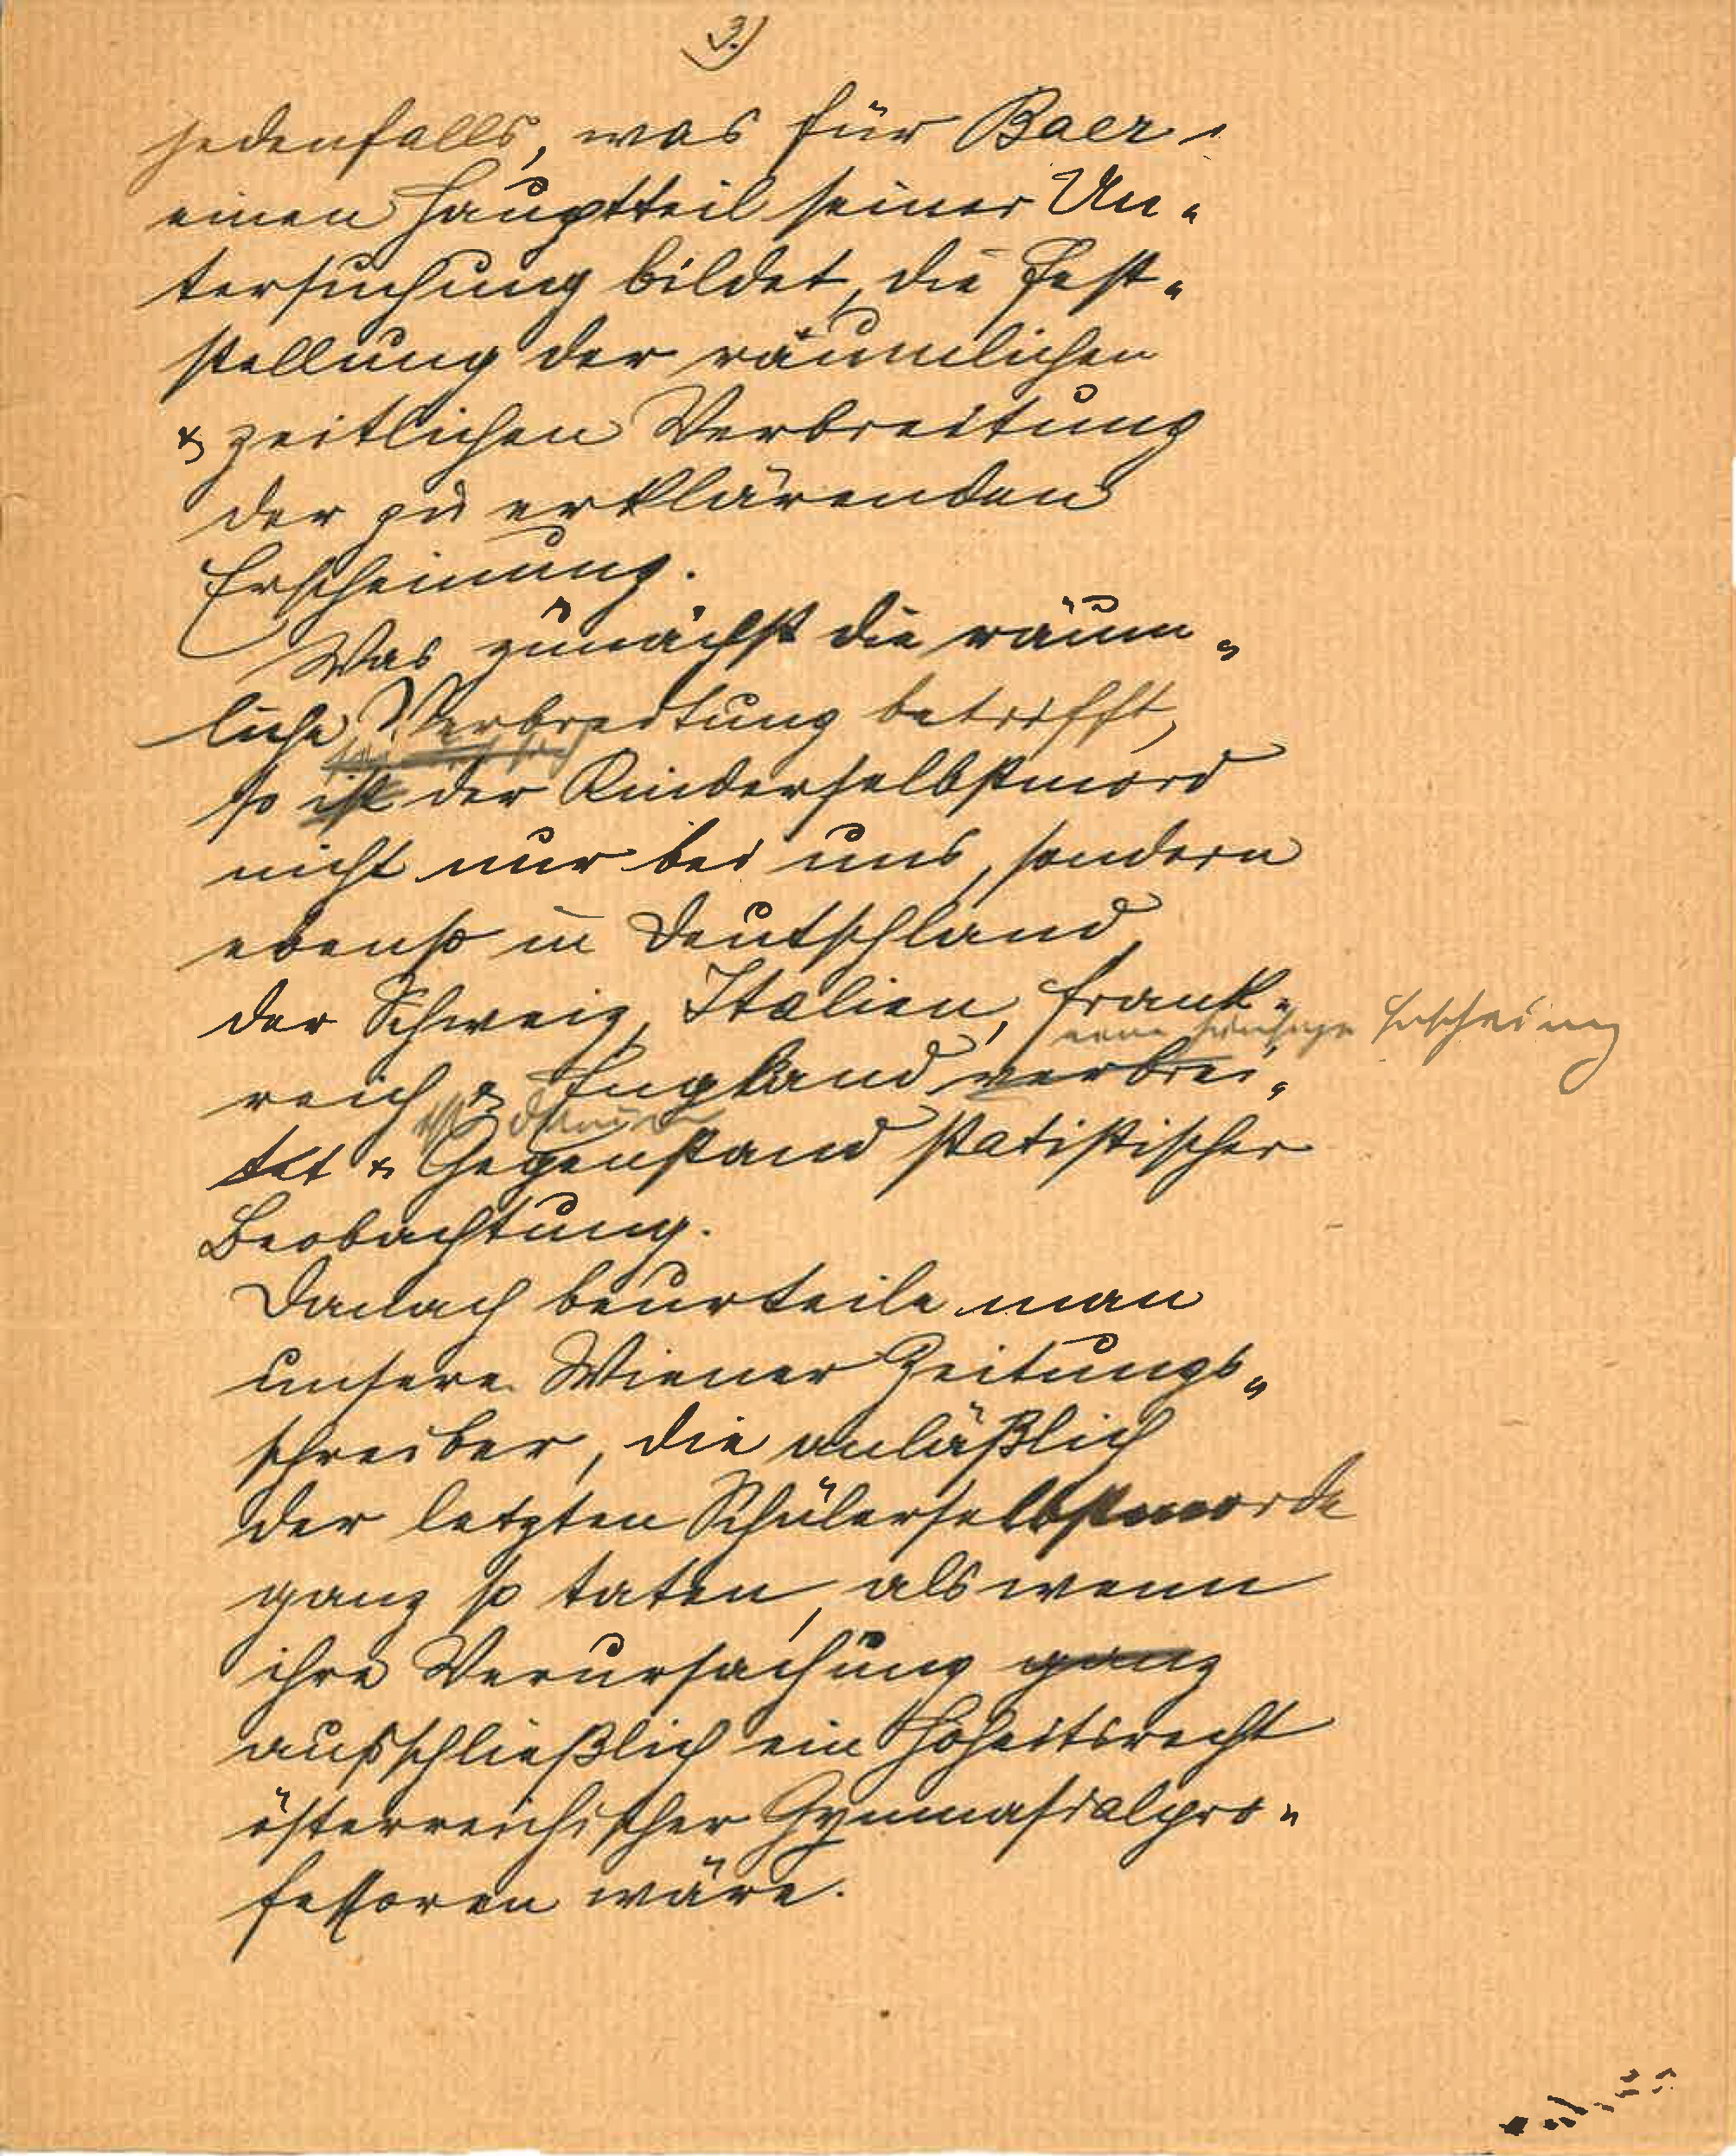 3.)
jedenfalls, was für Baer
einen Hauptteil seiner Un-
tersuchung bildet, die Fest-
stellung der räumlichen
& zeitlichen Verbreitung
der zu erklärenden
Erscheinung.
Was zunächst die räum-
liche Verbreitung betrifft,
so ist der Kinderselbstmord
nicht nur bei uns, sondern
ebenso in Deutschland,
der Schweiz, Italien, Frank-
eine häufige Erscheinung
reich & England verbrei-
ist daher
tet & Gegenstand statistischer
Beobachtung.
Danach beurteile man
unsere Wiener Zeitungs-
schreiber, die anläßlich
der letzten Schülerselbstmorde
ganz so taten, als wenn
ihre Verursachung ganz
ausschließlich ein Hoheitsrecht
österreichischer Gymnasialpro-
fessoren wäre.